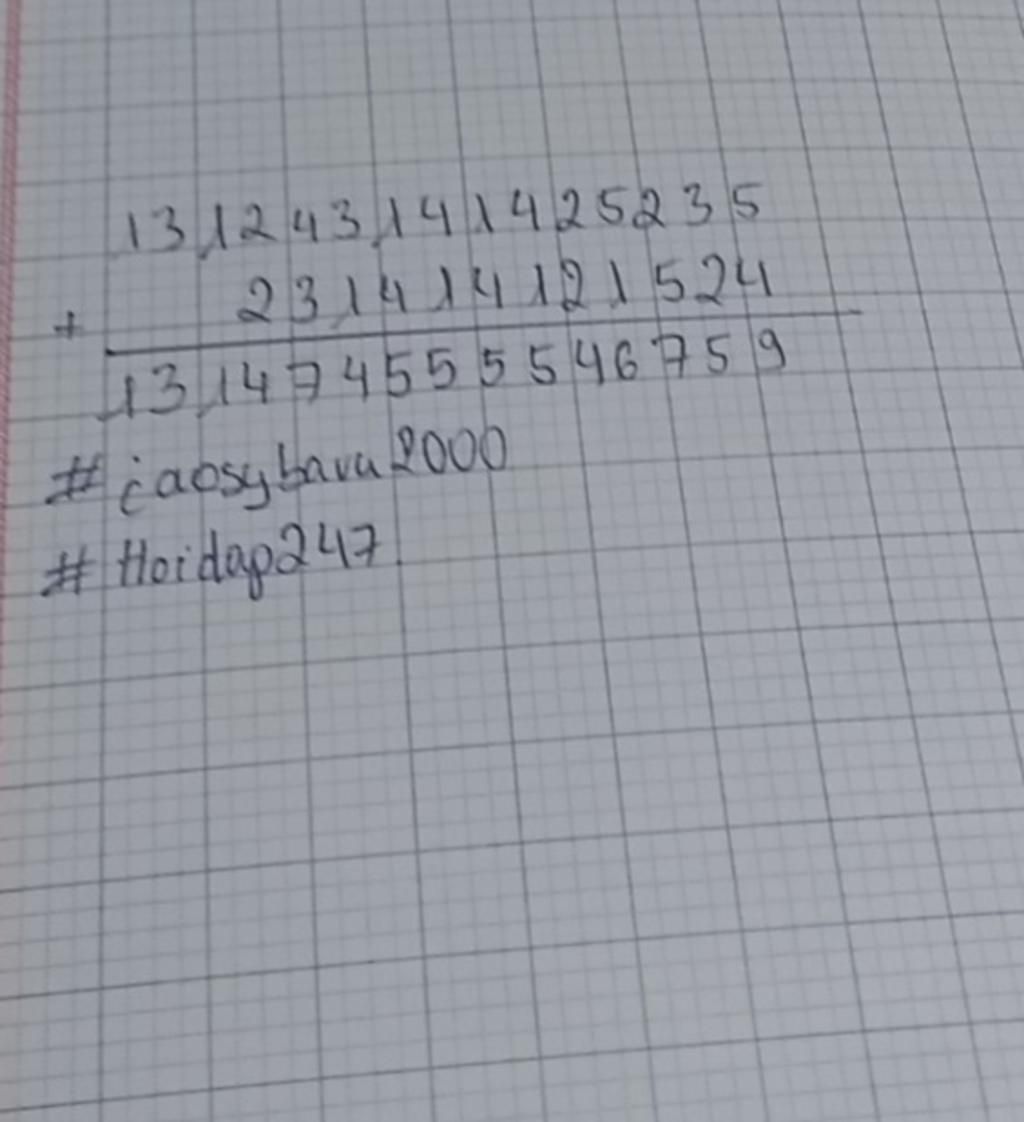 131243141425235
+ 231414121524
131474555546759
#caosybavu2000
#Hoidap247